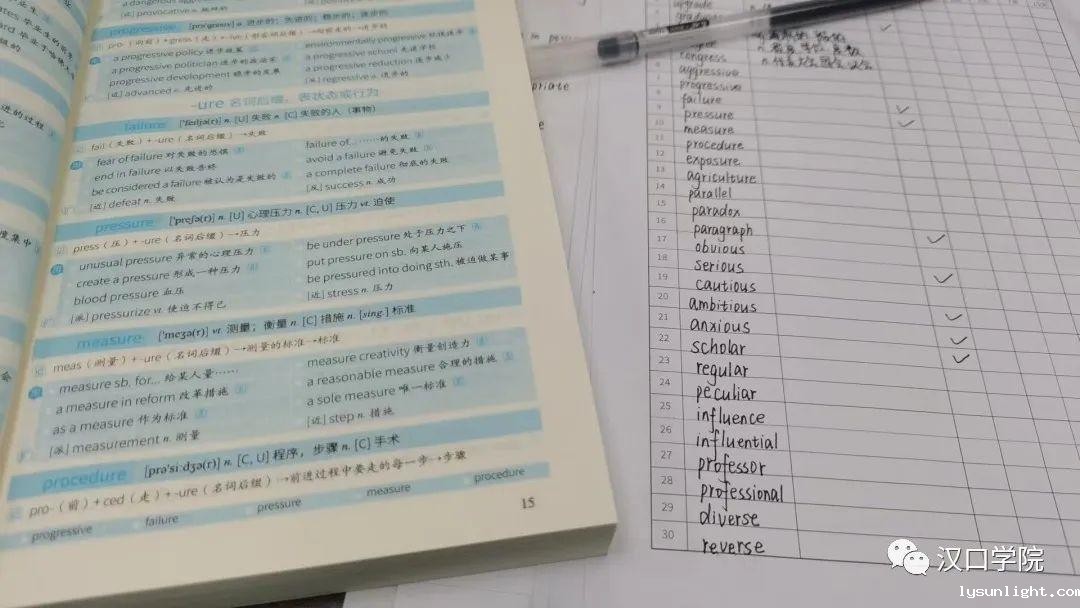 [近] provocative a.
progressive
pro-（向前）+ gress（走）+ -ive
a progressive policy 进步政策
environmentally progressive
a progressive politician 进步的政治家
a progressive school 先进学校
progressive development 稳步的发展
a progressive reduction 逐步减少
[近] advanced a. 先进的
[反] regressive a. 退步的
-ure 名词后缀，表状态或行为
failure ['feɪljə(r)] n. [U] 失败 n. [C] 失败的人（事物）
fail（失败）+ -ure（名词后缀）→失败
fear of failure 对失败的恐惧
failure of... ……的失败
end in failure 以失败告终
avoid a failure 避免失败
be considered a failure 被认为是失败的
a complete failure 彻底的失败
[近] defeat n. 失败
[反] success n. 成功
pressure ['preʃə(r)] n. [U] 心理压力 n. [C, U] 压力 vt. 迫使
press（压）+ -ure（名词后缀）→压力
unusual pressure 异常的心理压力
be under pressure 处于压力之下
create a pressure 形成一种压力
put pressure on sb. 向某人施压
blood pressure 血压
be pressured into doing sth. 被迫做某事
[派] pressurize vt. 使迫不得已
[近] stress n. 压力
measure ['meʒə(r)] vt. 测量；衡量 n. [C] 措施 n. [sing.] 标准
meas（测量）+ -ure（名词后缀）→测量的标准→标准
measure sb. for... 给某人量……
measure creativity 衡量创造力
a measure in reform 改革措施
a reasonable measure 合理的措施
as a measure 作为标准
a sole measure 唯一标准
[派] measurement n. 测量
[近] step n. 措施
procedure [prə'siːdʒə(r)] n. [C, U] 程序，步骤 n. [C] 手术
pro-（前）+ ced（走）+ -ure（名词后缀）→前进过程中要走的每一步→步骤
progressive failure pressure measure procedure
15
upgrade
congress
aggressive
progressive
failure
9 pressure
10 measure
11 procedure
12 exposure
13 agriculture
14 parallel
15 paradox
16 paragraph
17 obvious
18 serious
19 cautious
20 ambitious
21 anxious
22 scholar
23 regular
24 peculiar
25 influence
26 influential
27 professor
28 professional
29 diverse
30 reverse
汉口学院
lysunlight.com